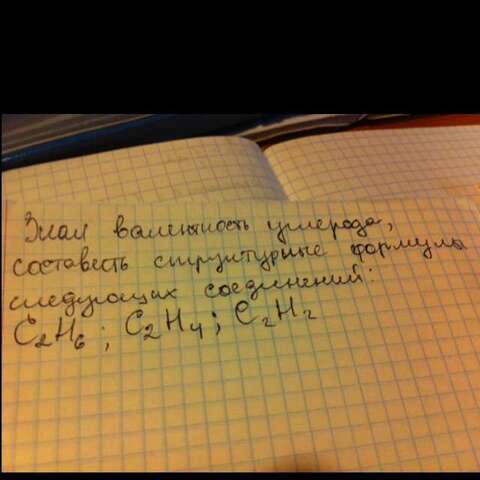 Зная валентность углерода,
составить структурные формулы
следующих соединений:
C₂H₆; C₂H₄; C₂H₂